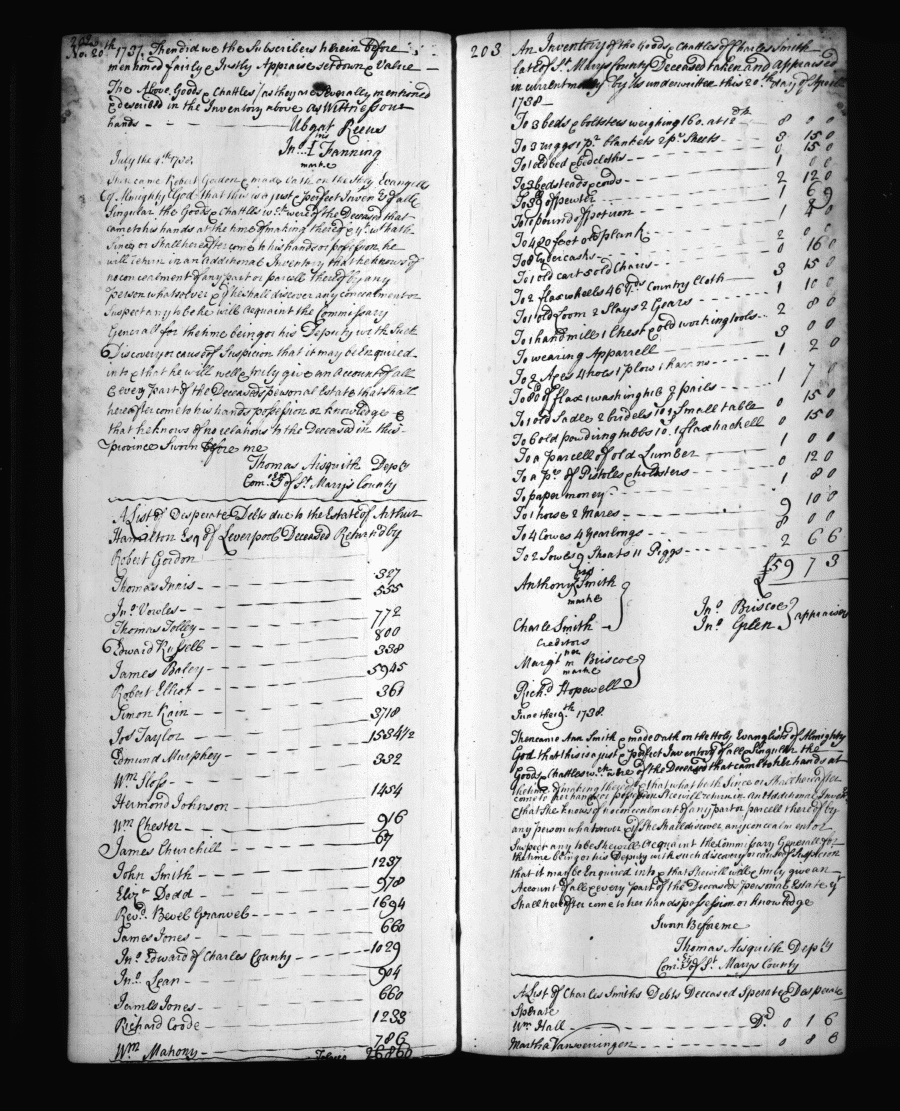 202
No. 20th 1737. Then did we the Subscribers herein before
mentioned fairly & Justly Appraise set down & Value
The Above Goods & Chattles as they are severally mentioned
& described in the Inventory above as Wittness our
hands
Reeves
his
Jno. I Fanning
marke
July the 4th 1738.
Then came Robert Gordon & made Oath on the Holy Evangels
of Almighty God that this is a just & perfect Inven.ty of all &
Singular the Goods & Chattles wch. were of the Deceased that
came to his hands at the time of making thereof & yt. what hath
Since or shall hereafter come to his hands or possession he
will return in an additional Inventory that he knows of
no concealment of any part or parcell thereof by any
person whatsoever & if he shall discover any concealment or
Suspect any to be he will acquaint the Commissary
Generall for the time being or his Deputy with Such
Discovery or cause of Suspicion that it may be Enquired
into & that he will well & truly give an Account of all
& every part of the Deceaseds personal Estate that shall
hereafter come to his hands possession or knowledge &
that he knows of no relations to the Deceased in this
province Sworn before me
Thomas Aisquith Depty
Com:ry of St. Marys County
A List of Desperate Debts due to the Estate of Arthur
Hamilton Esqr of Leverpool Deceased Return'd by
Robert Gordon
Thomas Innis 327
Jno. Vowles 555
Thomas Tolley 772
Edward Russell 800
James Baley 338
Robert Elliot 5945
Simon Kain 361
Jos Taylor 3718
Edmund Murphey 1534 1/2
Wm. Floss 332
Hermond Johnson 1454
Wm Chester 916
James Churchill 67
John Smith 1237
Eliz.a Dodd 978
Revd. Bevel Granvel 1694
James Jones 660
Jno. Edward of Charles County 1029
Jno. Lean 904
James Jones 660
Richard Coode 1233
Wm. Mahony 786
26860
203
An Inventory of the Goods & Chattles of Charles Smith
late of St. Marys County Deceased taken and appraised
in current money by us underwritten this 20th day of Aprill
1738
To 3 beds & bolsters weighing 160. at 12d 8 0 0
To 3 ruggs 1 pr. blankets 2 pr Sheets 3 15 0
To 1 old bed & bedcloths 0 15 0
To 3 bedsteads & cords 1 0 0
To 39 of pewter 2 12 0
To pound of pott iron 1 6 9
To 420 foot old plank 1 4 0
To 8 Syder casks 2 0 0
To 1 old cart 5 old Chairs 0 16 0
To 2 flax wheels 46 yds Country Cloth 3 15 0
To 1 old Loom 2 Slays 2 Gears 1 10 0
To 1 handmill 1 Chest & old working tools 2 8 0
To wearing Apparrell 3 0 0
To 2 Axes 4 hoes 1 plow 1 harrow 1 2 0
To 80 of flax 1 washing tub 2 pails 1 7 0
To 1 old Sadle, 2 bridels 1 Small table 0 15 0
To 6 old powdring tubbs 1 flax hackell 0 15 0
To a parcell of old Lumber 1 0 0
To a pr. of Pistoles & holsters 0 12 0
To paper money 1 8 0
To 1 horse 2 Mares 9 10 0
To 4 Cowes 4 Yearlongs 8 0 0
To 2 Sowes 9 Shoats 11 Piggs 2 6 6
£59 7 3
his
Anthony Smith
marke
Charle Smith
Creditors
Jno Briscoe
Jno. Glen } appraisers
her
Margt m Briscoe
marke
Richd Hopewell
June the 9th. 1738.
Then came Ann Smith & made Oath on the Holy Evanglists of Almighty
God that this is a just & perfect Inventory of all & Singular the
Goods & Chattles wch. were of the Deceased that came to her hands at
the time of making thereof & that what hath Since or Shall hereafter
come to her hands or possession She will return in an Additional Invent.y
& that She knows of no concealment of any part or parcell thereof by
any person whatsoever & if She Shall discover any concealment or
Suspect any to be She will acquaint the Commissary Generall for
the time being or his Deputy with such discovery or cause of Suspicion
that it may be Enquired into & that She will well & truly give an
Account of all & every part of the Deceaseds personal Estate yt
Shall hereafter come to her hands possession or knowledge
Sworn Before me
Thomas Aisquith Depty
Com:ry of St. Marys County
A List of Charles Smiths Debts Deceased Sperate & Desperate
Sperate
Wm Hall Dr 0 1 6
Martha Vansweringen 0 8 0